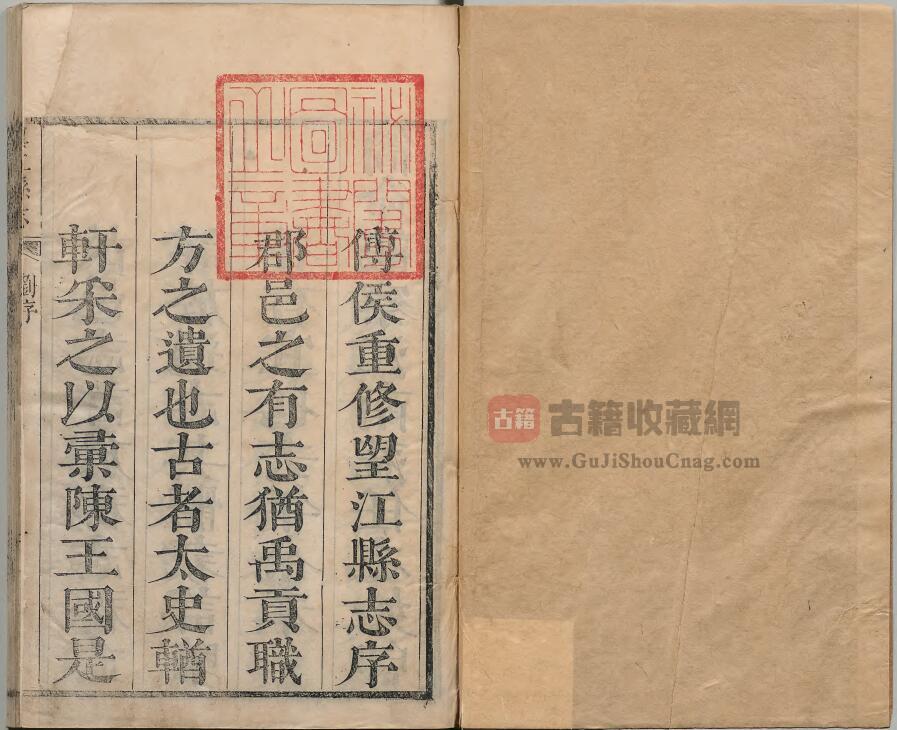 傅侯重修望江縣志序
郡邑之有志猶禹貢職
方之遺也古者太史輶
軒采之以彙陳王國是
劉序
秘閣圖書之章
古籍
古籍收藏網
www.GuJiShouCnag.com